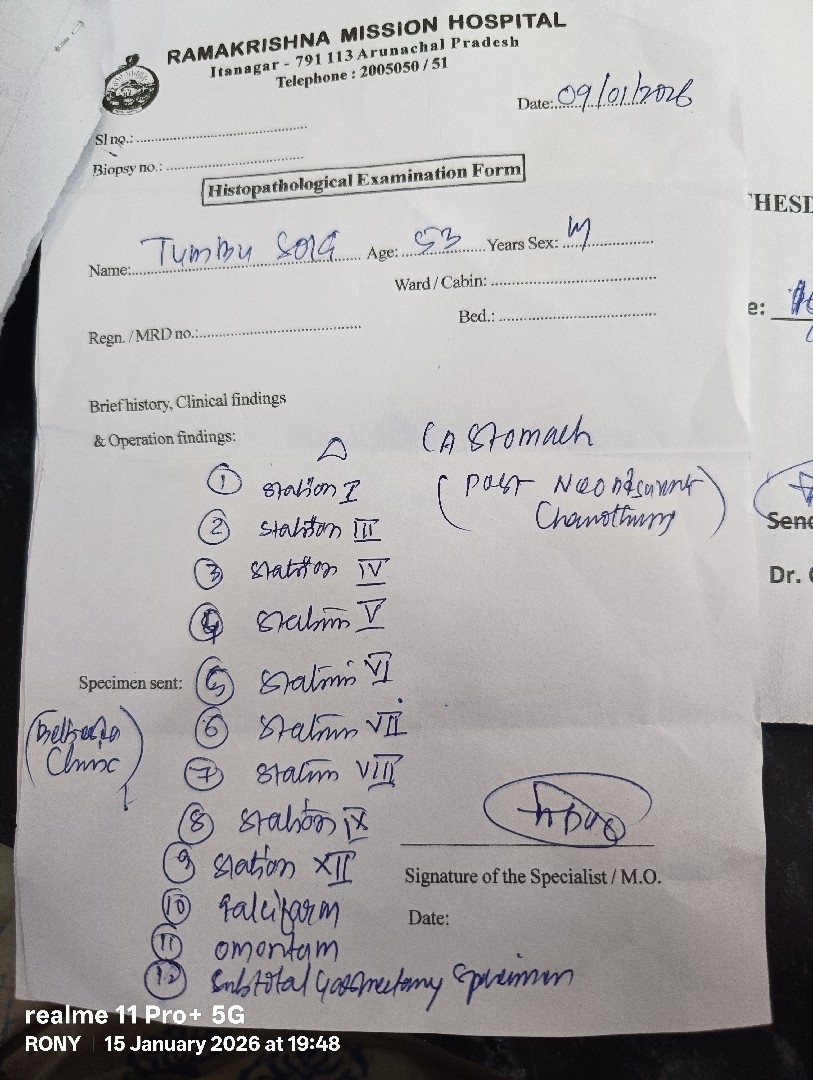 RAMAKRISHNA MISSION HOSPITAL
Itanagar - 791 113 Arunachal Pradesh
Telephone : 2005050 / 51
Date: 09/01/2026
Sl no.:
Biopsy no.:
Histopathological Examination Form
Name: Tumbu Sora Age: 53 Years Sex: M
Ward / Cabin:
Bed.:
Regn. / MRD no.:
Brief history, Clinical findings
& Operation findings: △ CA Stomach
(Post Neoadjuvant
Chemotherapy)
① Station I
② Station III
③ Station IV
④ Station V
Specimen sent: ⑤ Station VI
⑥ Station VII
⑦ Station VIII
⑧ Station IX
⑨ Station XII
⑩ Falciform
⑪ omentum
⑫ Subtotal Gastrectomy Specimen
Clinic
Signature of the Specialist / M.O.
Date:
THESD
e:
Send
Dr.
realme 11 Pro+ 5G
RONY | 15 January 2026 at 19:48